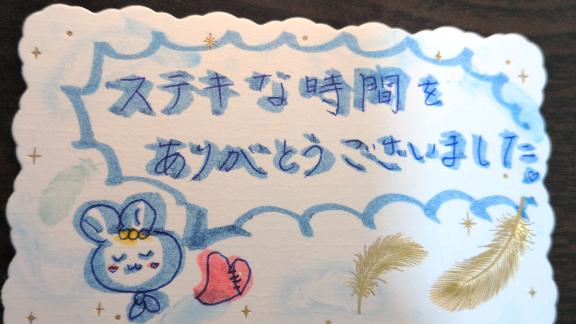 ステキな時間を
ありがとうございました。